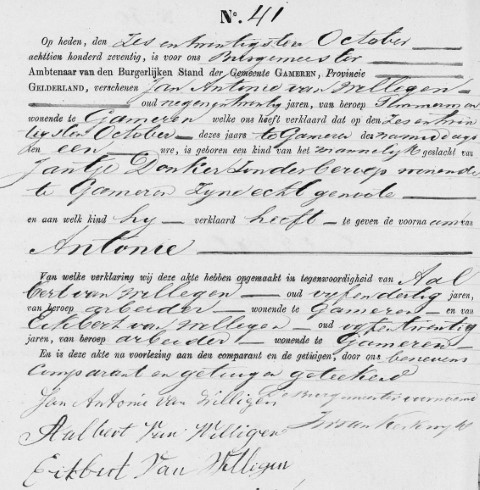 No. 41
Op heden, den Zes en twintigsten October
achttien honderd zeventig, is voor ons Burgemeester
Ambtenaar van den Burgerlijken Stand der Gemeente GAMEREN, Provincie
GELDERLAND, verschenen Jan Antonie van Willegen
oud negen en twintig jaren, van beroep
wonende te Gameren welke ons heeft verklaard dat op den Zes en twin
tigsten October dezes jaars te Gameren des namiddags
ten een ure, is geboren een kind van het mannelijk geslacht van
Jantje Donker zonder beroep wonende
te Gameren zyne echtgenoote
en aan welk kind hy verklaard heeft te geven de voorna am van
Antonie
Van welke verklaring wij deze akte hebben opgemaakt in tegenwoordigheid van Aal
bert van Willegen oud vyfendertig jaren,
van beroep arbeider wonende te Gameren en van
Eikbert van Willegen oud vyfentwintig
jaren, van beroep arbeider wonende te Gameren
En is deze akte na voorlezing aan den comparant en de getuigen, door ons benevens
comparant en getuigen geteekend
Jan Antonie van Willigen
Burgemeester voornoemd
Aalbert Van Willigen
Eikbert Van Willigen